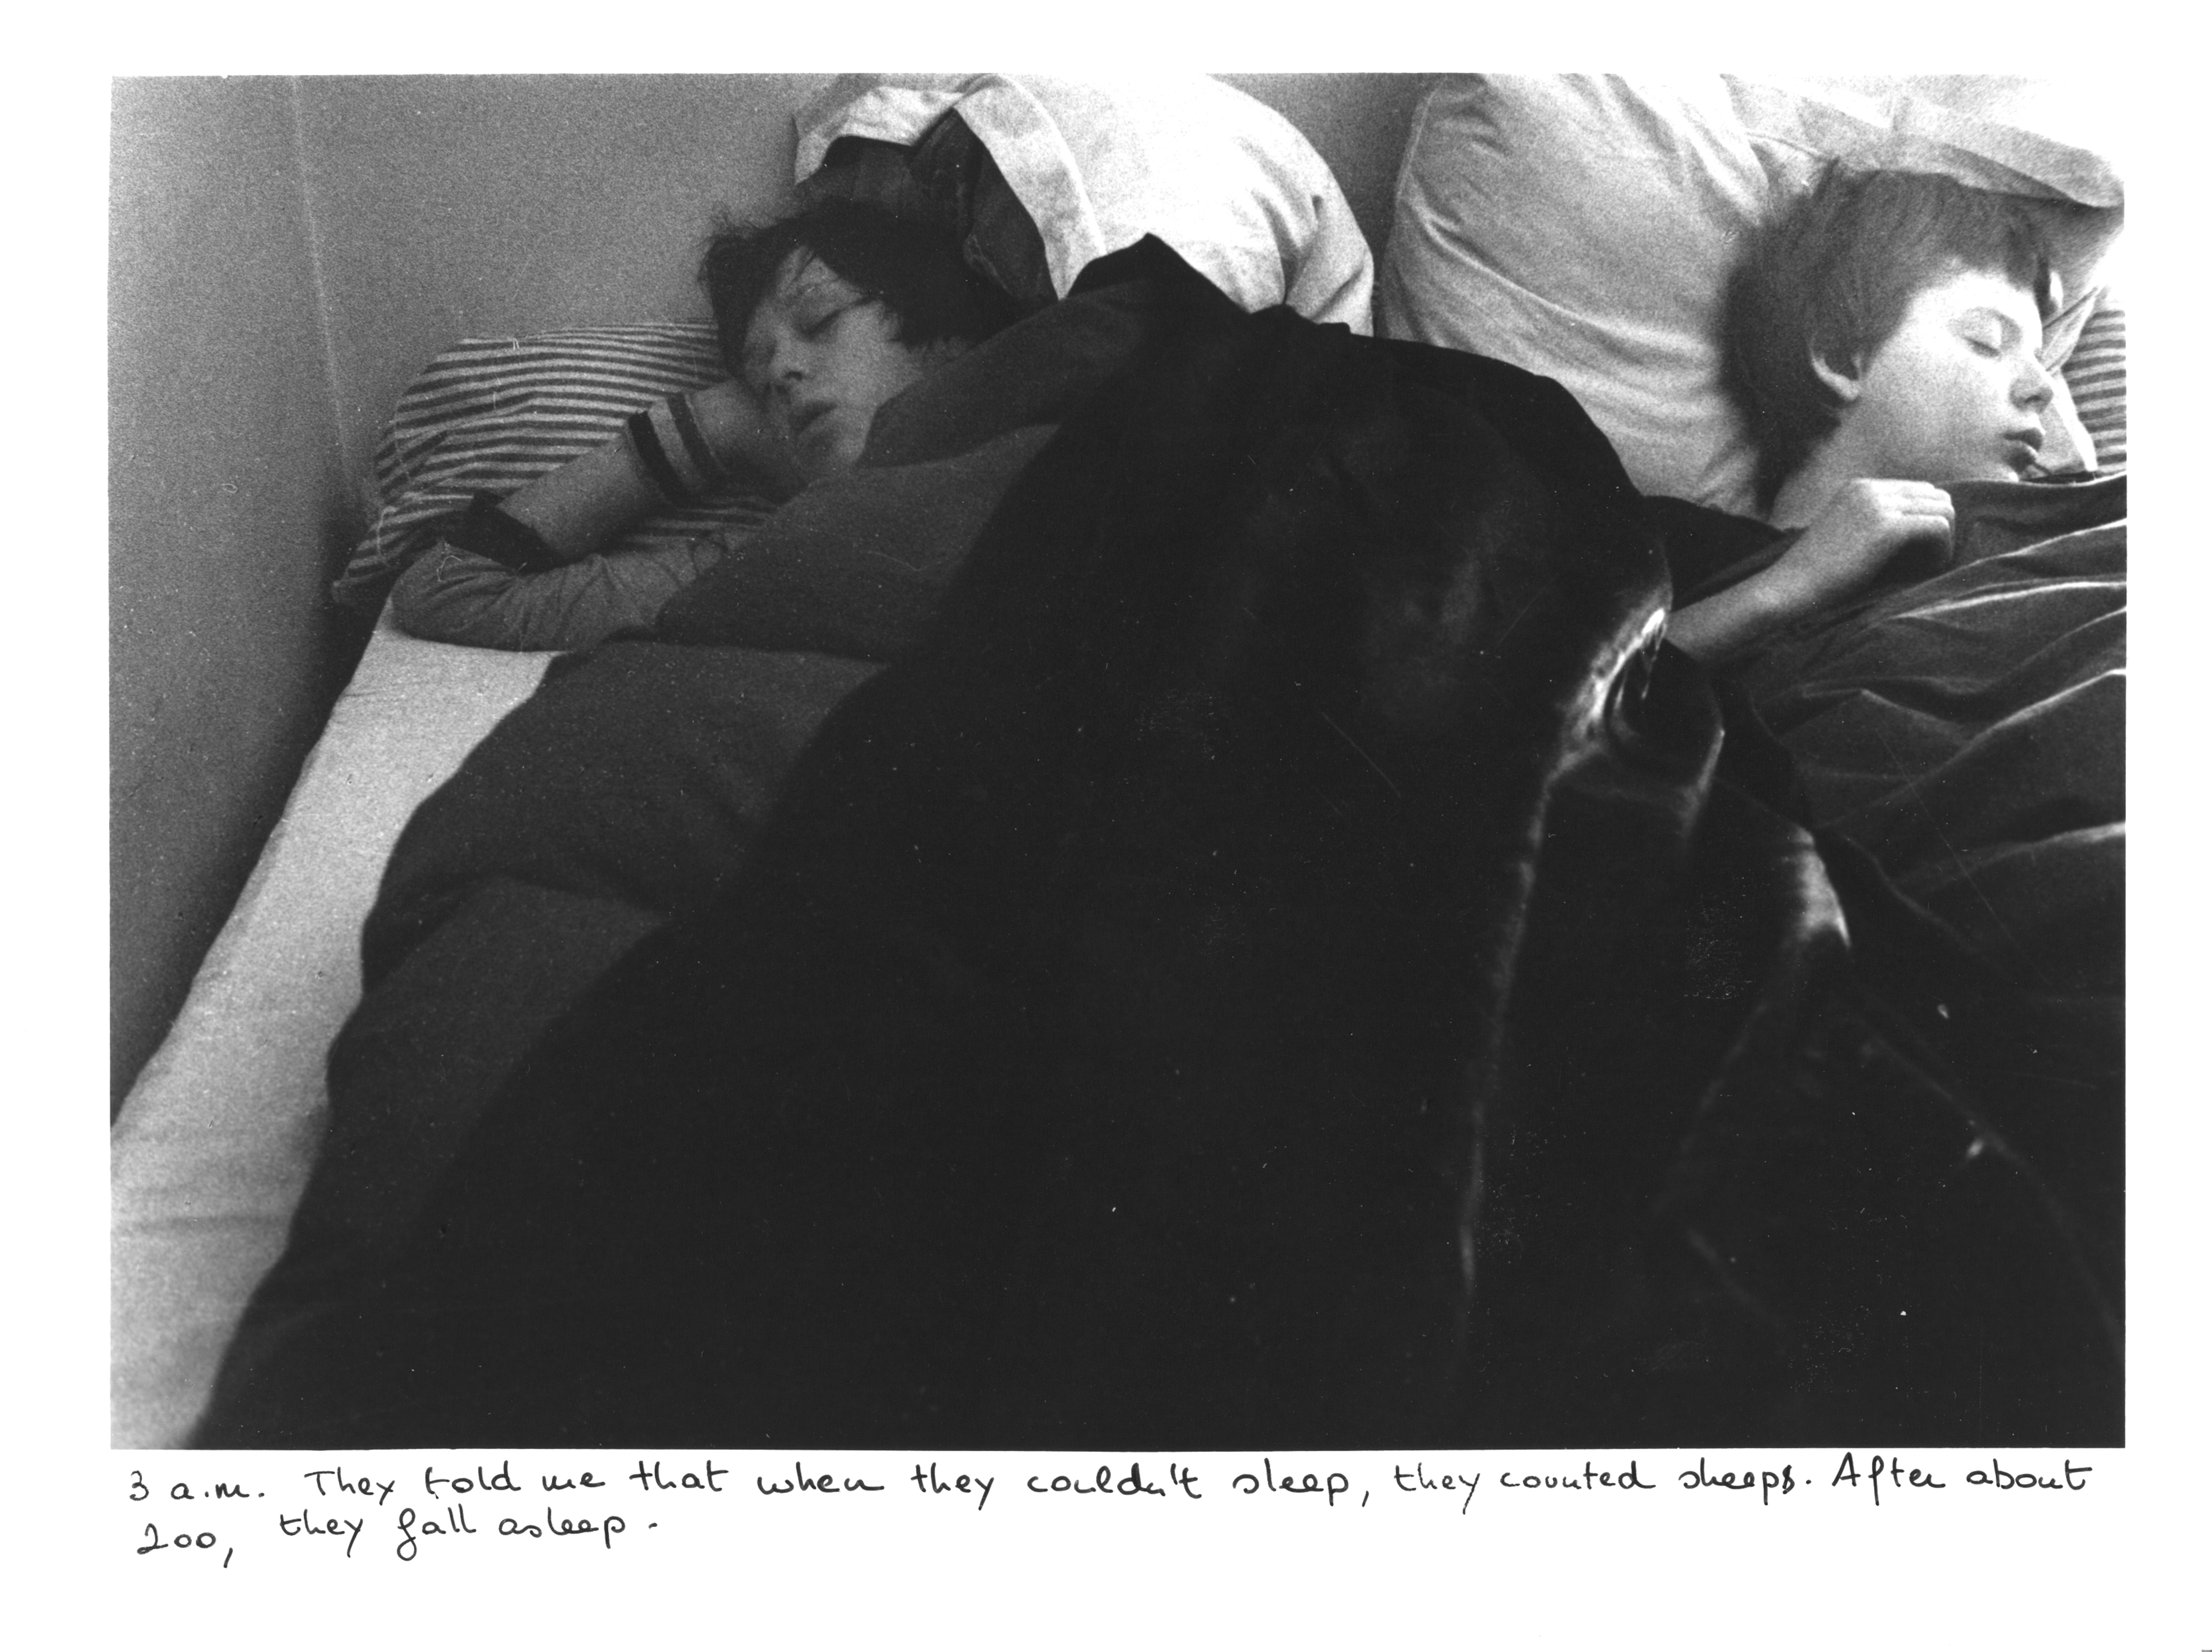 3 a.m. They told me that when they couldn't sleep, they counted sheeps. After about
200, they fall asleep.